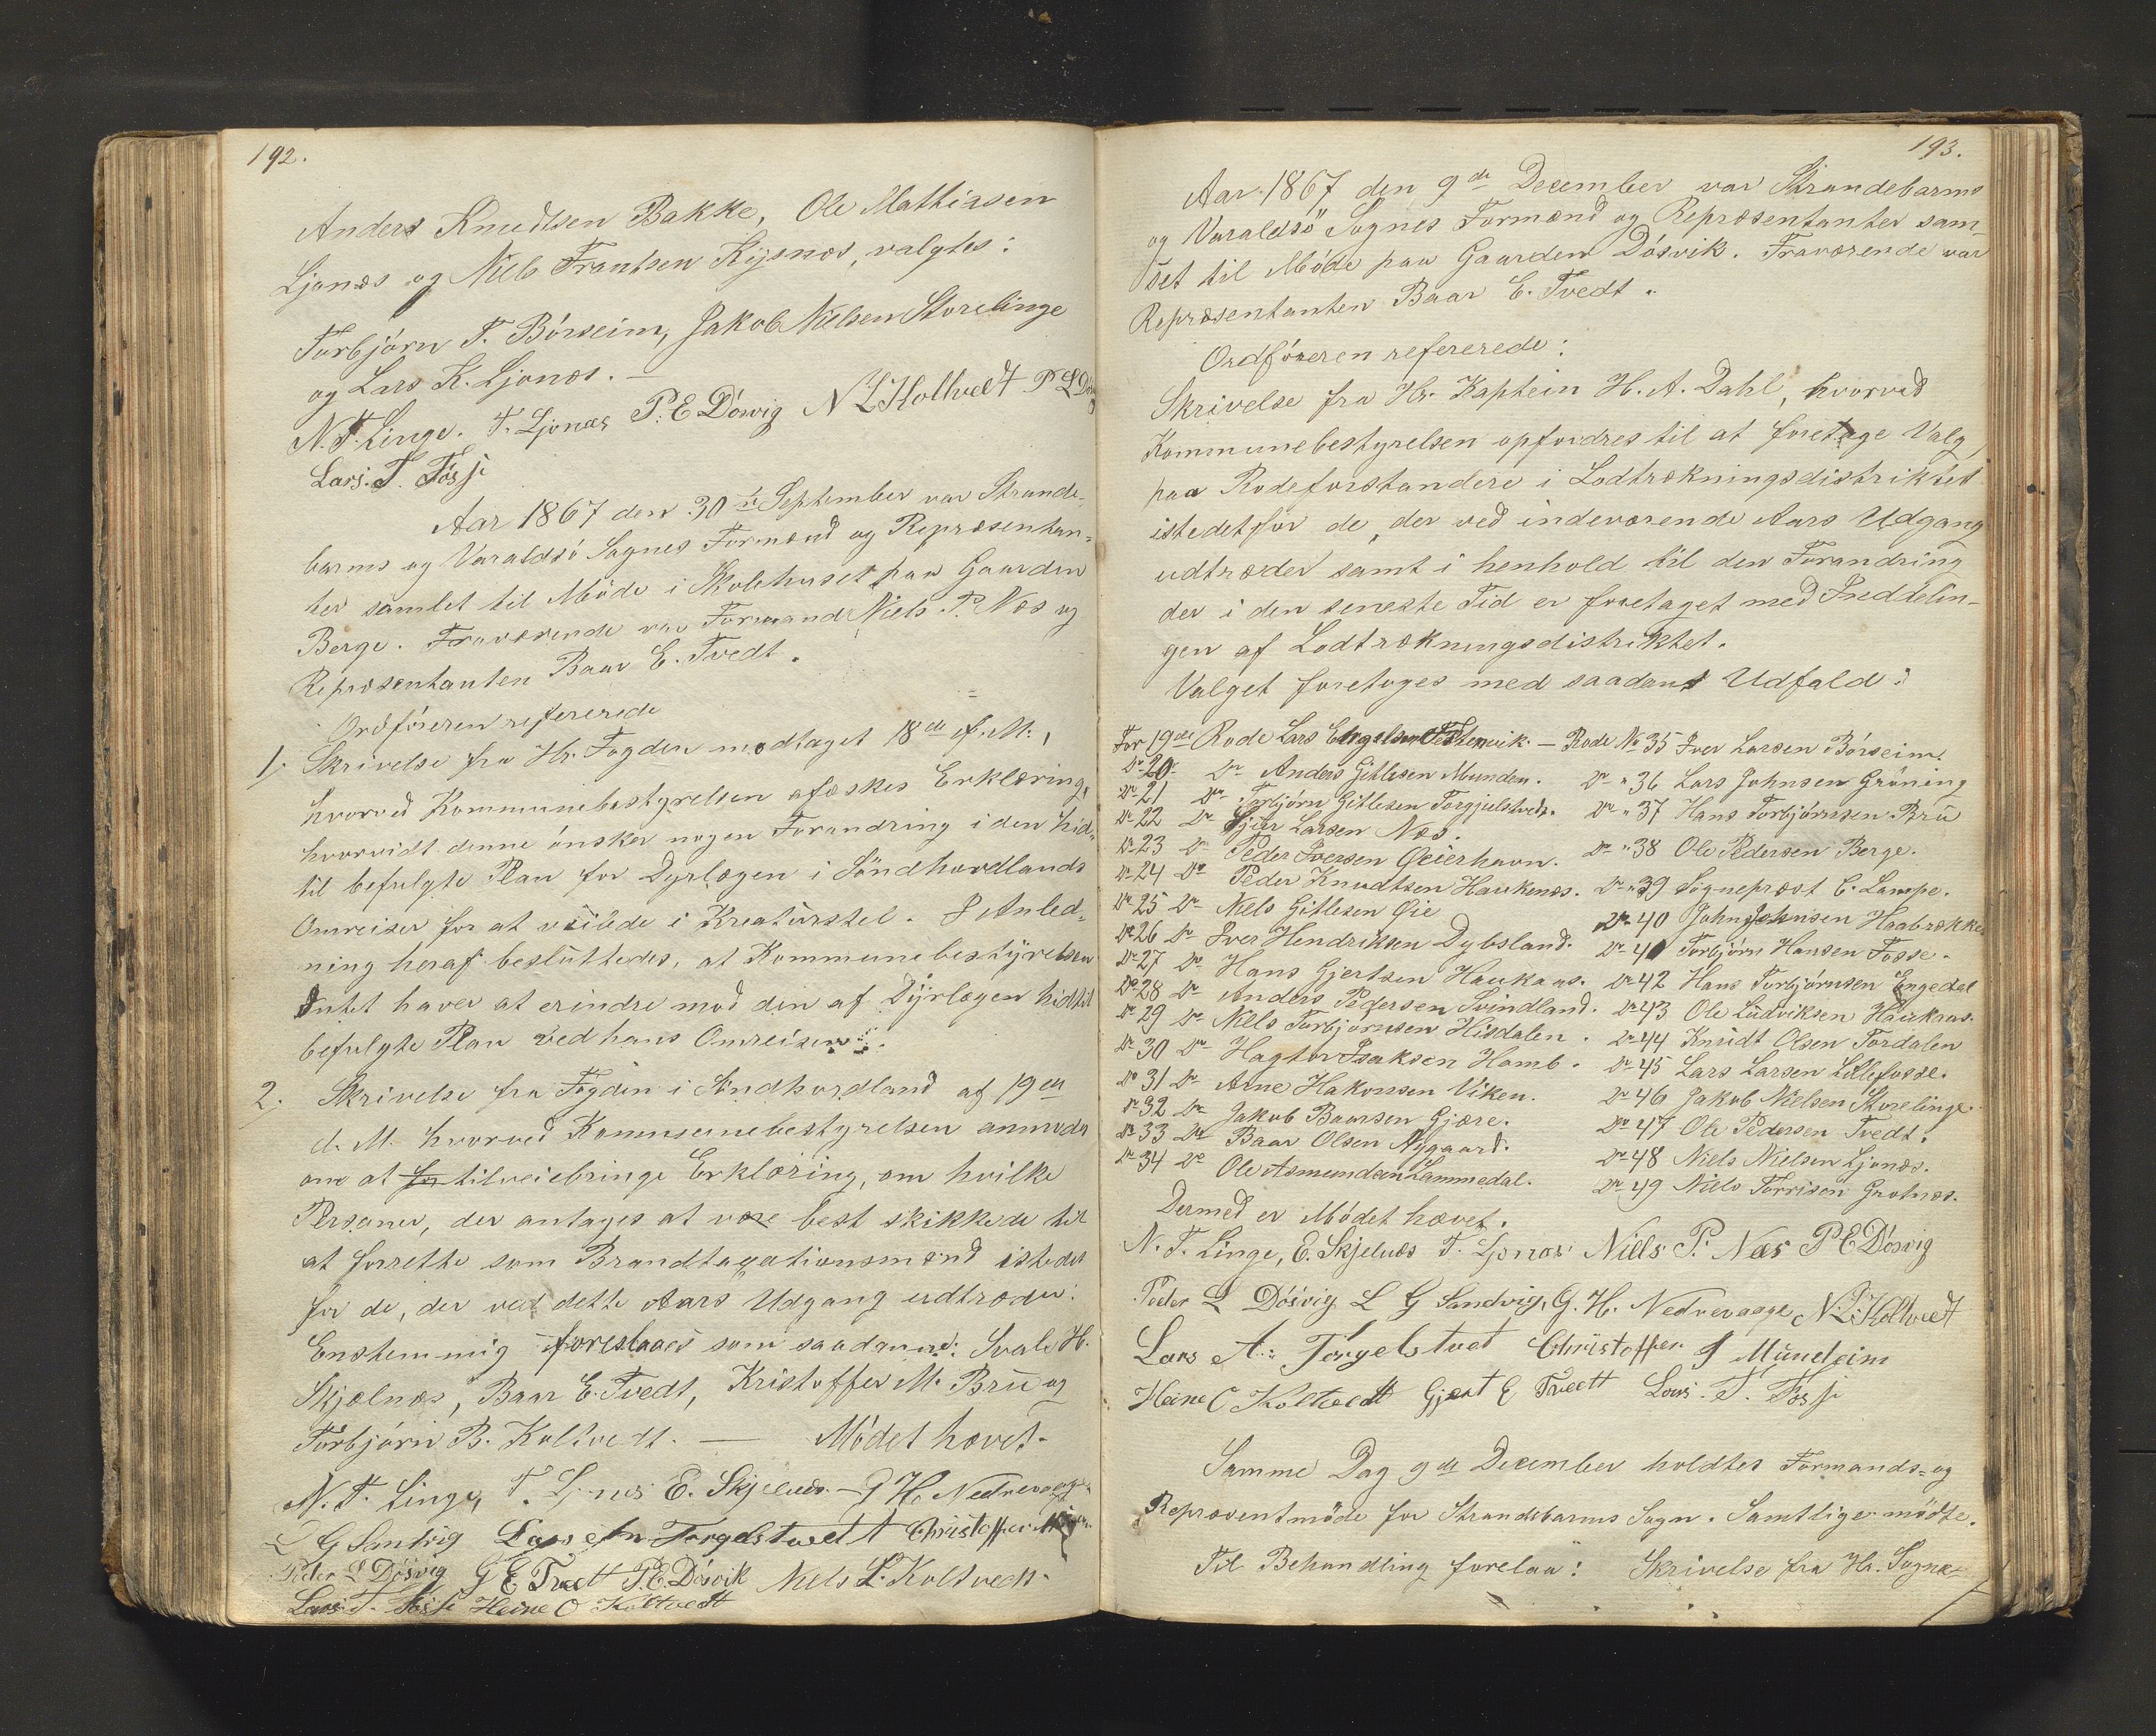 192.
Anders Knudtsen Bakke, Ole Mathiasen
Ljonæs og Niels Frantsen Kysnæs, valgtes:
Torbjørn T. Børseim, Jakob Nielsen Storelinge
og Lars K. Ljonæs. —
N. T. Linge. T. Ljonæs P. E Dósvig N L Holtvedt P L Dós
Lars. T. Fosse
Aar 1867 den 30te September var Strande-
barms og Varaldsó Sognes Formænd og Repræsentan-
ter samlet til Móde i Skolehuset paa Gaarden
Berge. Fraværende var Formand Niels P. Næs og
Repræsentanten Baar E. Tvedt.
Ordfóreren refererede
1, Skrivelse fra Hr. Fogden modtaget 18de f. M.,
hvorved Kommunebestyrelsen afæskes Erklæring,
hvorvidt denne ónsker nogen Forandring i den hid-
til befulgte Plan for Dyrlægen i Söndhordlands
Omreiser for at veilede i Kreaturstel. I Anled-
ning heraf besluttedes, at Kommunebestyrelsen
Intet haver at erindre mod den af Dyrlægen hidtil
befulgte Plan ved hans Omreiser.
2, Skrivelse fra Fogden i Söndhordland af 19de
d. M. hvorved Kommunebestyrelsen anmodes
om at for tilveiebringe Erklæring, om hvilke
Personer, der antages at være best skikkede til
at forrette som Brandtaxationsmænd istedet
for de, der ved dette Aars Udgang udtræder:
Enstemmig foreslaaes som saadanne: Svale H.
Skjælnæs, Baar E. Tvedt, Kristoffer M. Brú og
Torbjórn B. Koltvedt. — Módet hævet.
N. T. Linge, T. Ljonæs E. Skjelnæs — G H. Nedrevaage
L G Sandvig Lars A Torgelstvedt Christoffer
Peder L Dósvig G E Tvedt P. E. Dósvik Niels L. Koltvedt.
Lars T. Fosse Heine O Koltvedt
193.
Aar 1867 den 9de December var Strandebarms
og Varaldsö Sognes Formænd og Repræsentanter sam-
let til Móde paa Gaarden Dósvik. Fraværende var
Repræsentanten Baar E. Tvedt.
Ordfóreren refererede:
Skrivelse fra Hr. Kaptein H. A. Dahl, hvorved
Kommunebestyrelsen opfordres til at foretage Valg
paa Rodeforstandere i Lodtrækningsdistriktet
istedetfor de, der ved indeværende Aars Udgang
udtræder samt i henhold til den Forandring
der i den seneste Tid er foretaget med Inddelin-
gen af Lodtrækningsdistriktet.
Valget foretoges med saadant Udfald:
For 19de Rode Lars Engelsen Testenvik. — Rode No 35 Iver Larsen Bórseim.
Do 20 Do Anders Gitlesen Munden. Do " 36 Lars Johnsen Gröning
Do 21 Do Torbjórn Gitlesen Torgjulstvedt. Do " 37 Hans Torbjórnsen Brú
Do 22 Do Gjert Larsen Næs. Do " 38 Ole Pedersen Berge.
Do 23 Do Peder Iversen Øeierhavn. Do " 39 Sognepræst C. Lampe.
Do 24 Do Peder Knudtsen Haukenæs. Do 40 John Johnsen Haabrække
Do 25 Do Niels Gitlesen Øie Do 41 Torbjórn Hansen Fosse.
Do 26 Do Iver Hendriksen Dybsland. Do 42 Hans Torbjórnsen Engedal
Do 27 Do Hans Gjertsen Haukaas. Do 43 Ole Ludviksen Haukaas.
Do 28 Do Anders Pedersen Svindland. Do 44 Knudt Olsen Tordalen
Do 29 Do Niels Torbjórnsen Hisdalen. Do 45 Lars Larsen Lillefosse.
Do 30 Do Hagtor Isaksen Hamb. Do 46 Jakob Nielsen Storelinge.
Do 31 Do Arne Hakonsen Viken. Do 47 Ole Pedersen Tvedt.
Do 32 Do Jakob Baarsen Gjære. Do 48 Niels Nielsen Ljonæs.
Do 33 Do Baar Olsen Nygaard. Do 49 Niels Torrisen Grotnæs.
Do 34 Do Ole Asmundsen Lammedal.
Dermed er Módet hævet.
N. T. Linge, E. Skjelnæs T. Ljonæs Niels P. Næs P E Dósvig
Peder L Dósvig L G Sandvig, G. H. Nedrevaage N. L. Holtvedt
Lars A. Torgelstvet Christoffer J Mundeim
Heine O Koltvedt Gjert E Tvedt Lars. T. Fosse
Samme Dag 9de December holdtes Formands- og
Repræsentmóde for Strandebarms Sogn. Samtlige módte.
Til Behandling forelaa: Skrivelse fra Hr. Sogne-